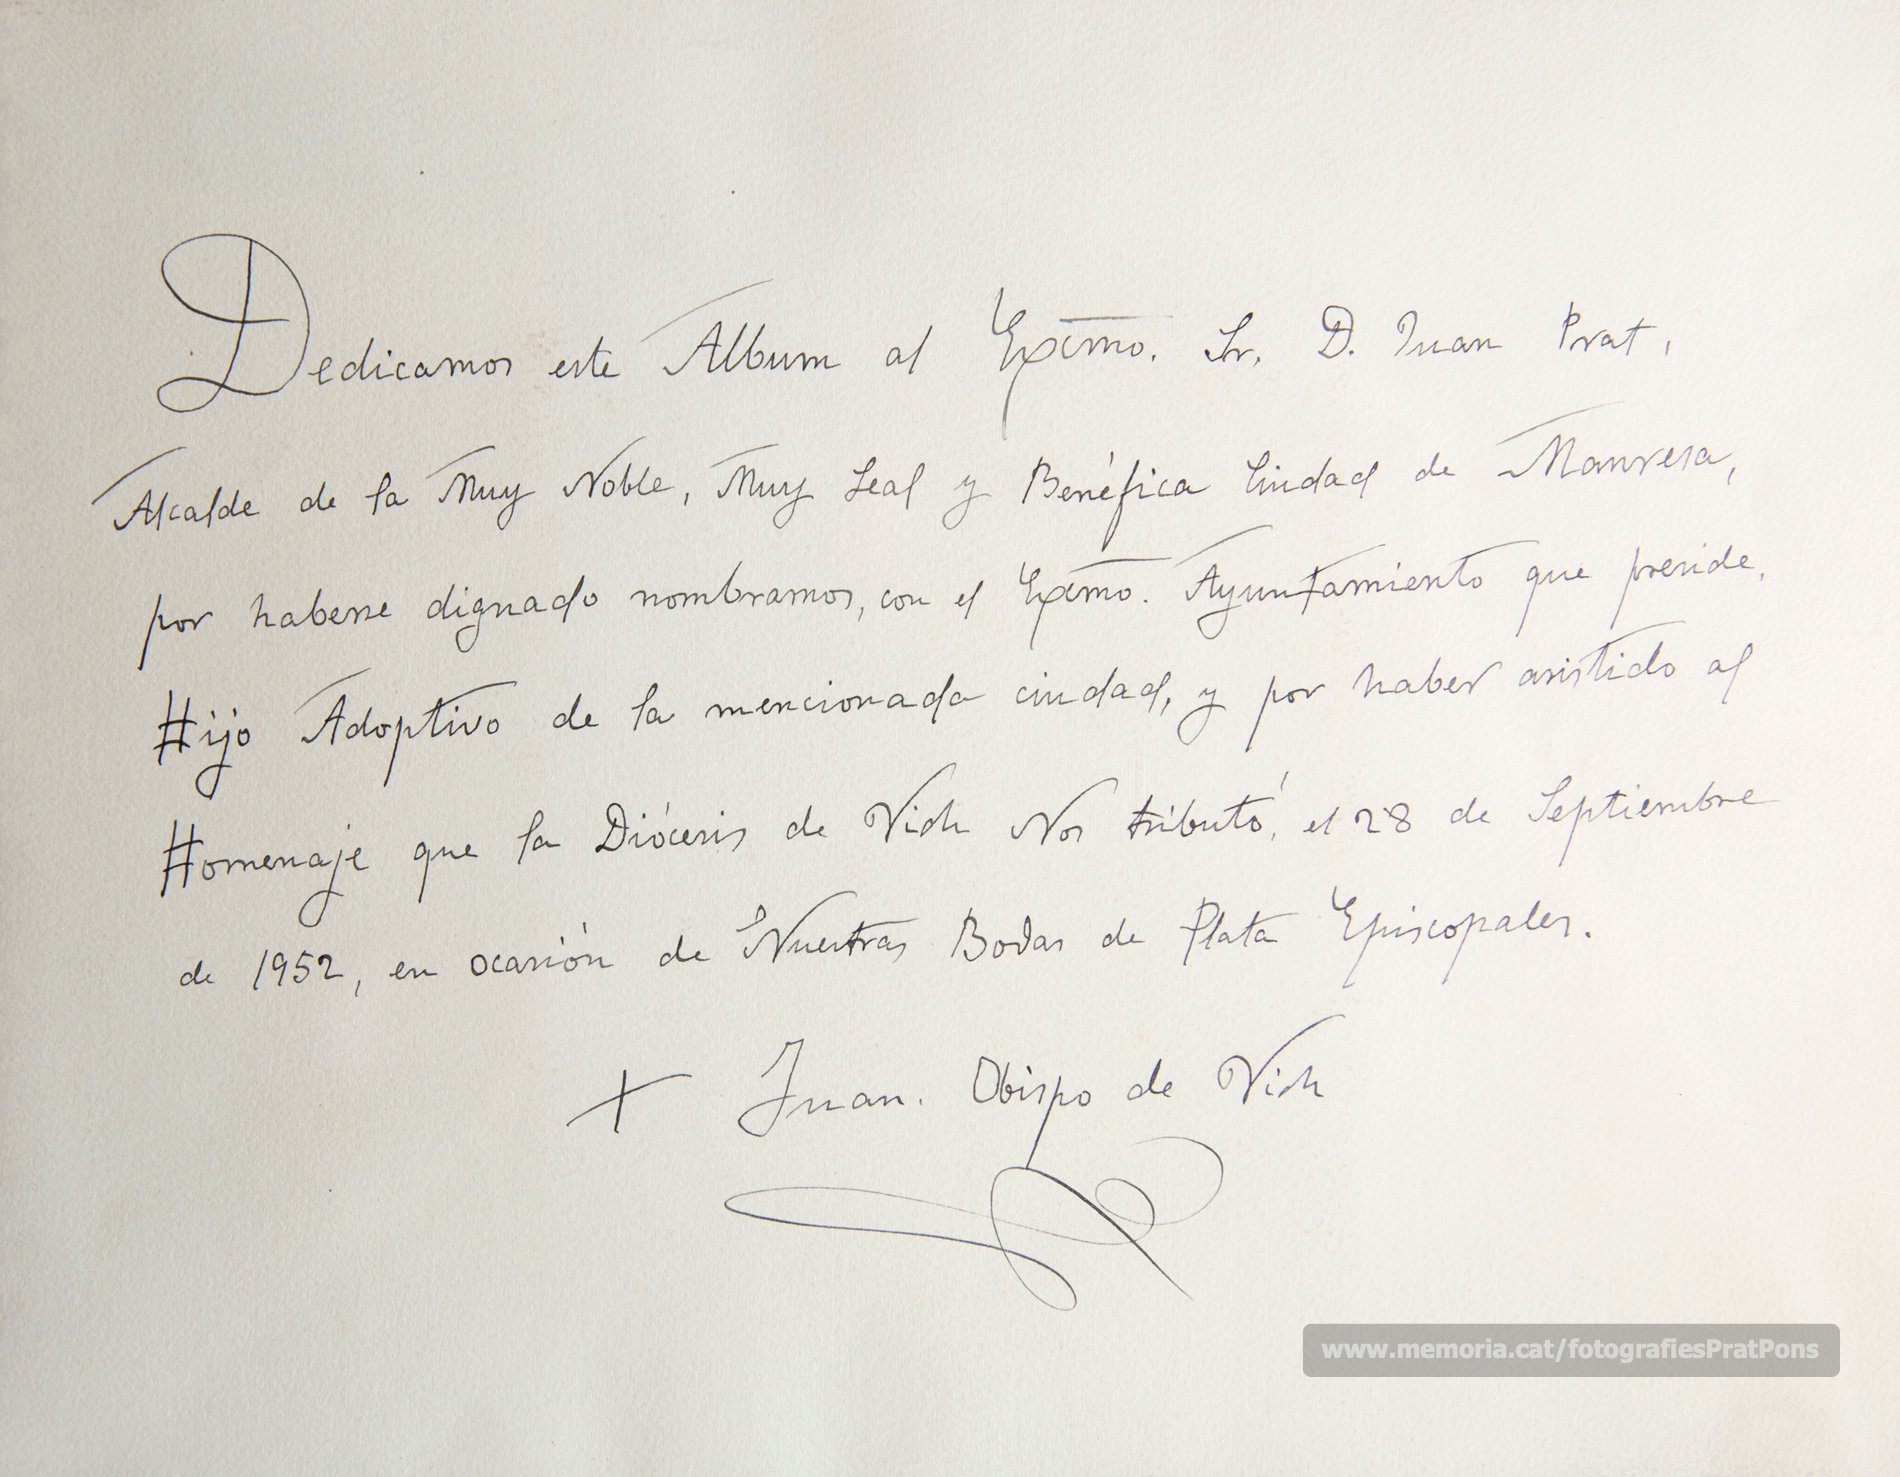 Dedicamos este Album al Excmo. Sr. D. Juan Prat,
Alcalde de la Muy Noble, Muy Leal y Benéfica Ciudad de Manresa,
por haberse dignado nombrarnos, con el Excmo. Ayuntamiento que preside,
Hijo Adoptivo de la mencionada ciudad, y por haber asistido al
Homenaje que la Diócesis de Vich Nos tributó, el 28 de Septiembre
de 1952, en ocasión de Nuestras Bodas de Plata Episcopales.
+ Juan. Obispo de Vich
www.memoria.cat/fotografiesPratPons